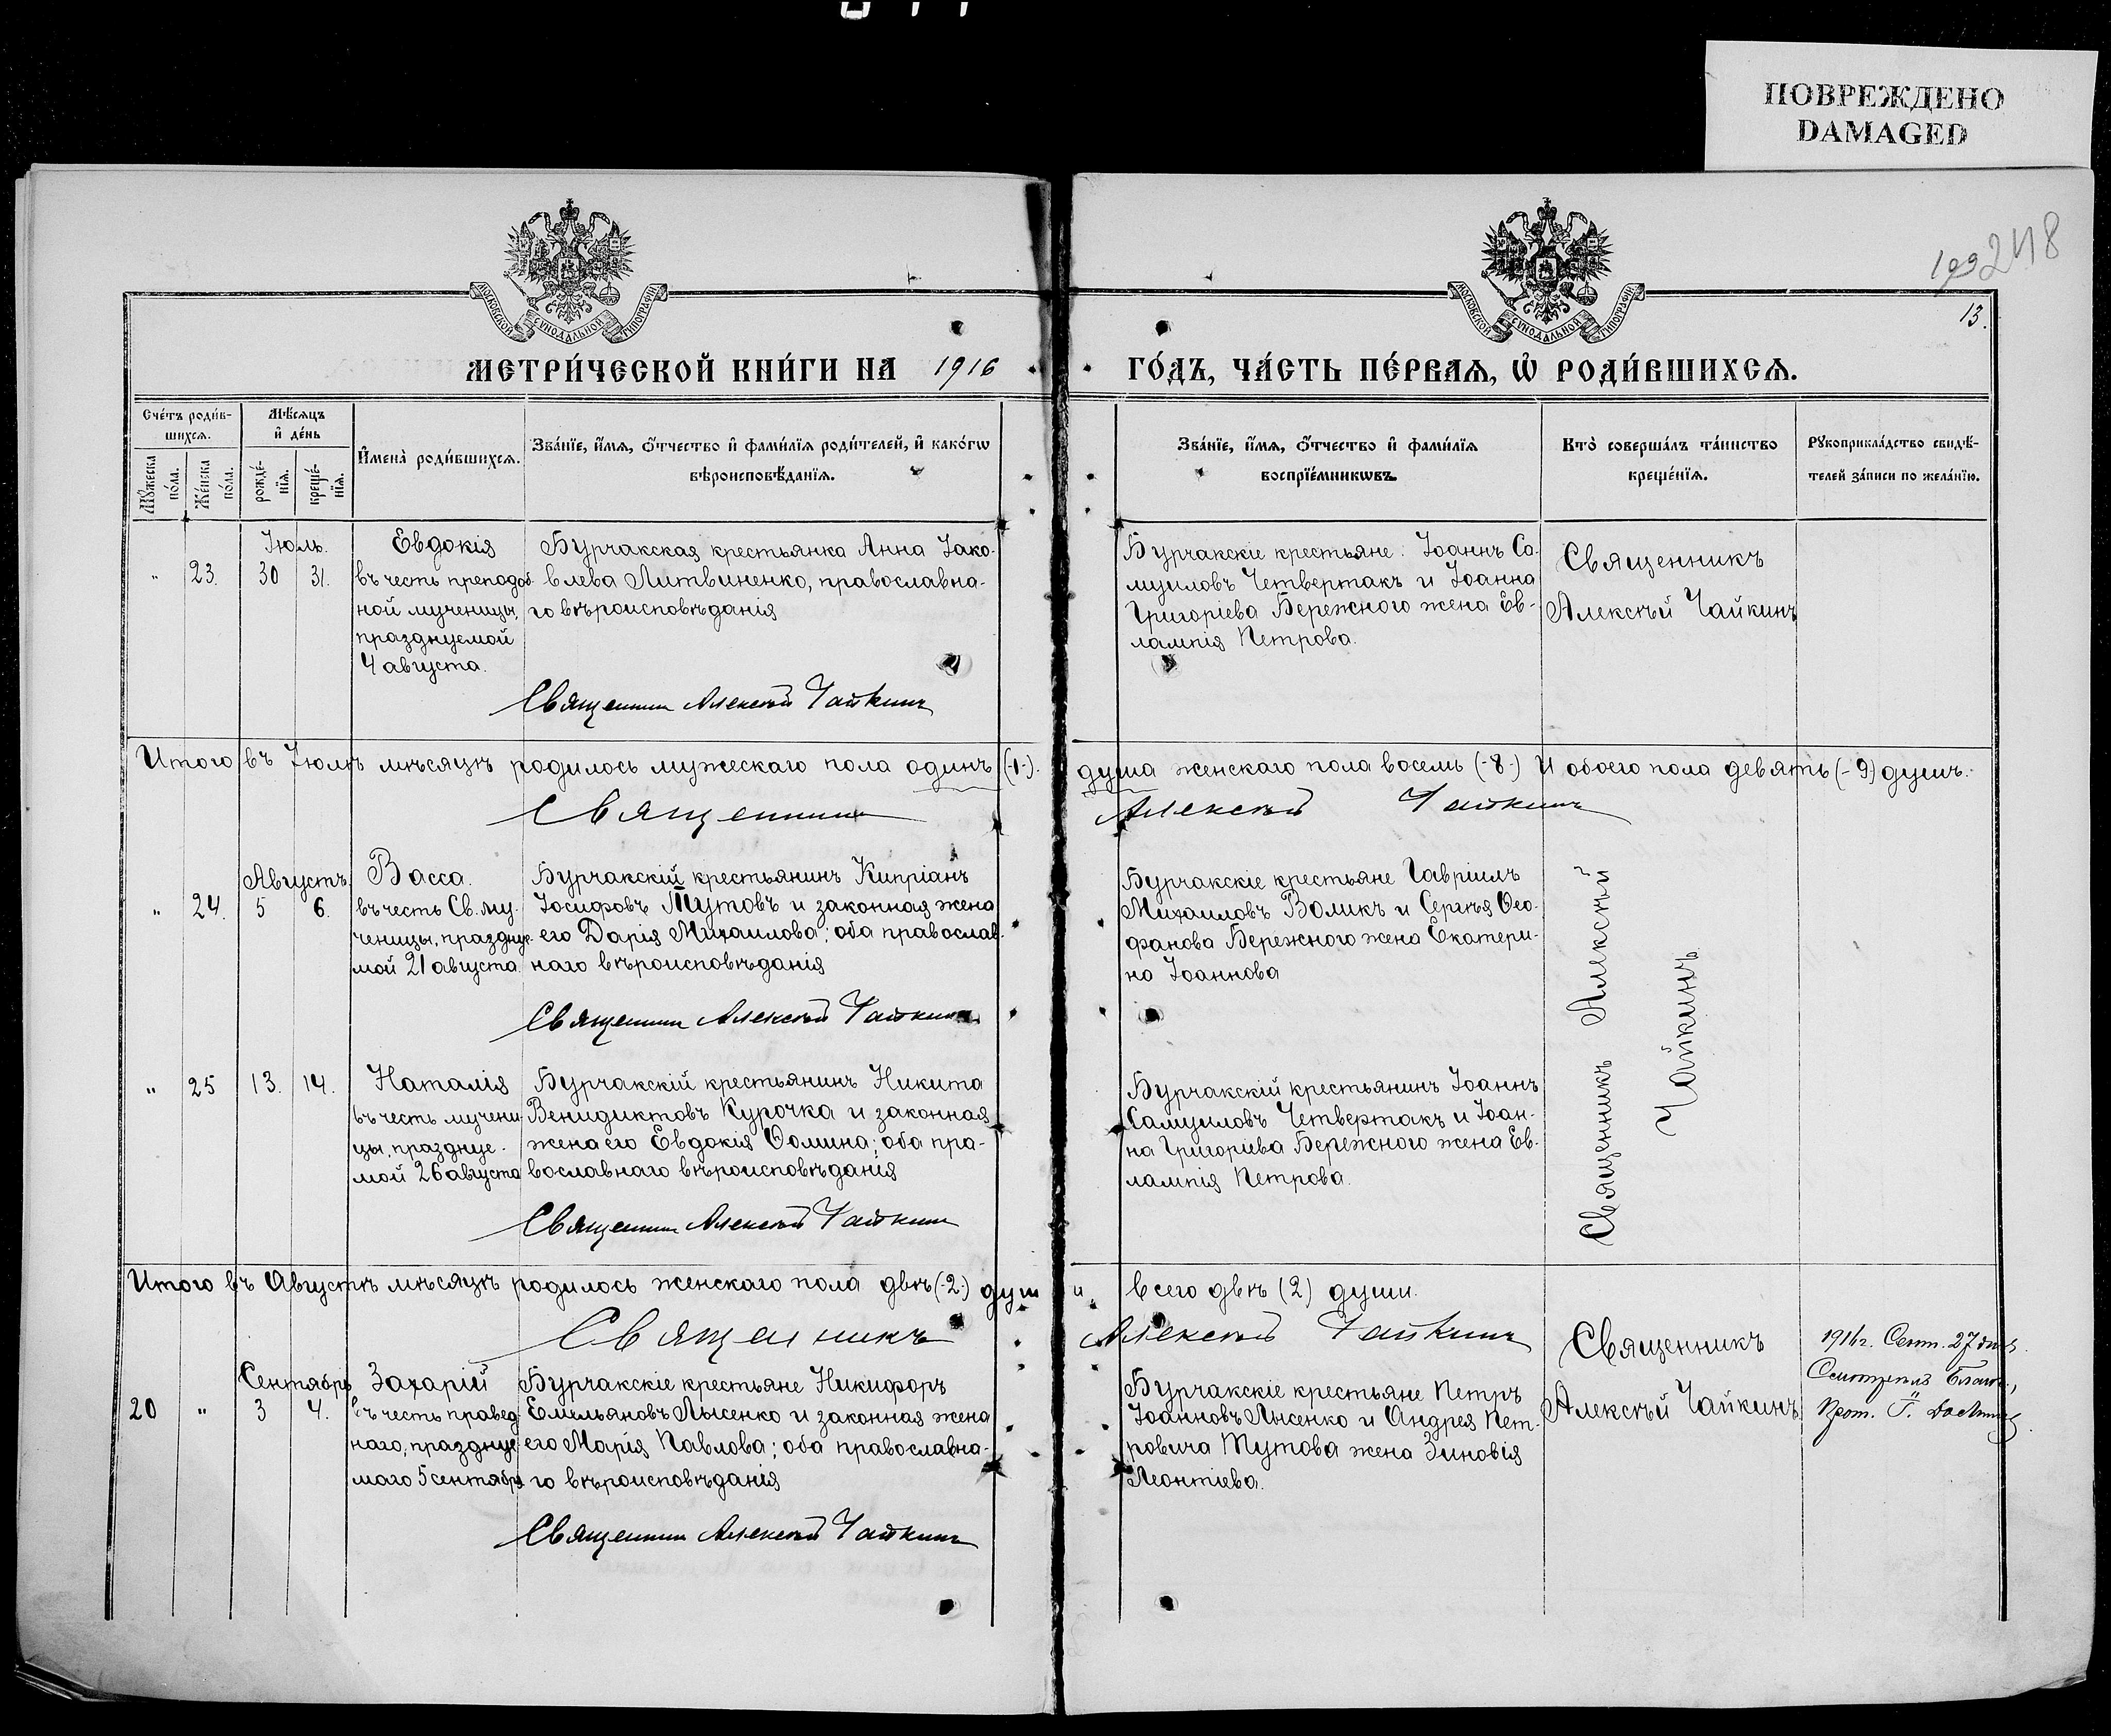 ПОВРЕЖДЕНО
DAMAGED
248
13.
МОСКОВСКОЙ СѴНОДАЛЬНОЙ ТИПОГРАФІИ
МОСКОВСКОЙ СѴНОДАЛЬНОЙ ТИПОГРАФІИ
МЕТРИ́ЧЕСКОЙ КНИ́ГИ НА 1916
ГО́ДЪ, ЧА́СТЬ ПЕ́РВАѦ, Ѡ҆ РОДИ́ВШИХСѦ.
Сче́тъ роди́в-
шихсѧ.
Мꙋ́жеска
по́ла.
Же́нска
по́ла.
Мѣ́сѧцъ
и҆ де́нь
рожде́-
нїѧ.
креще́-
нїѧ.
И҆мена̀ роди́вшихсѧ.
Зва́нїе, и҆́мѧ, ѻ҆́тчество и҆ фами́лїѧ роди́телей, и҆ како́гѡ
вѣроисповѣ́данїѧ.
Зва́нїе, и҆́мѧ, ѻ҆́тчество и҆ фами́лїѧ
воспрїе́мникѡвъ.
Кто̀ соверша́лъ та́инство
креще́нїѧ.
Рꙋкоприкла́дство свидѣ́-
телей за́писи по жела́нїю.
Іюль.
" 23. 30 31.
Евдокія
въ честь преподоб-
ной мученицы,
празднуемой
4 августа.
Бурчакская крестьянка Анна Іако-
влева Литвиненко, православна-
го вѣроисповѣданія
Священник Алексѣй Чайкинъ
Бурчакскіе крестьяне: Іоаннъ Са-
муиловъ Четвертакъ и Іоанна
Григоріева Бережного жена Ев-
лампія Петрова.
Священникъ
Алексѣй Чайкинъ
Итого въ Іюлѣ мѣсяцѣ родилось мужескаго пола одинъ (-1-).
душа женскаго пола восемь (-8-) И обоего пола девять (-9-) душъ.
Священник
Алексѣй Чайкинъ
Августъ.
" 24. 5 6.
Васса.
въ честь Св. му-
ченицы, праздиуе-
мой 21 августа.
Бурчакскій крестьянинъ Кипріанъ
Іосифовъ Тутовъ и законная жена
его Дарія Михаилова; оба православ-
наго вѣроисповѣданія
Священник Алексѣй Чайкинъ
Бурчакскіе крестьяне Гавріилъ
Михаиловъ Воликъ и Сергѣя Ѳео-
фанова Бережного жена Екатери-
на Іоаннова
Священникъ Алексѣй
Чайкинъ
" 25 13. 14.
Наталія
въ честь мучени-
цы, празднуе-
мой 26 августа
Бурчакскій крестьянинъ Никита
Венидиктовъ Курочка и законная
жена его Евдокія Ѳомина; оба пра-
вославнаго вѣроисповѣданія
Священник Алексѣй Чайкин
Бурчакскій крестьянинъ Іоаннъ
Самуиловъ Четвертакъ и Іоан-
на Григоріева Бережного жена Ев-
лампія Петрова.
Итого въ Августѣ мѣсяцѣ родилось женскаго пола двѣ (-2-) душ
и всего двѣ (2) души.
Священникъ
Алексѣй Чайкинъ
Сентябрь
20 " 3 4.
Захарій
въ честь правед-
наго, праздную-
маго 5 сентября
Бурчакскіе крестьяне Никифоръ
Емельяновъ Лысенко и законная жена
его Марія Павлова; оба православна-
го вѣроисповѣданія
Священник Алексѣй Чайкинъ
Бурчакскіе крестьяне Петръ
Іоанновъ Лысенко и Андрея Пет-
ровича Тутова жена Зиновія
Леонтіева.
Священникъ
Алексѣй Чайкинъ
1916 г. Сент. 27 дня
Прот.